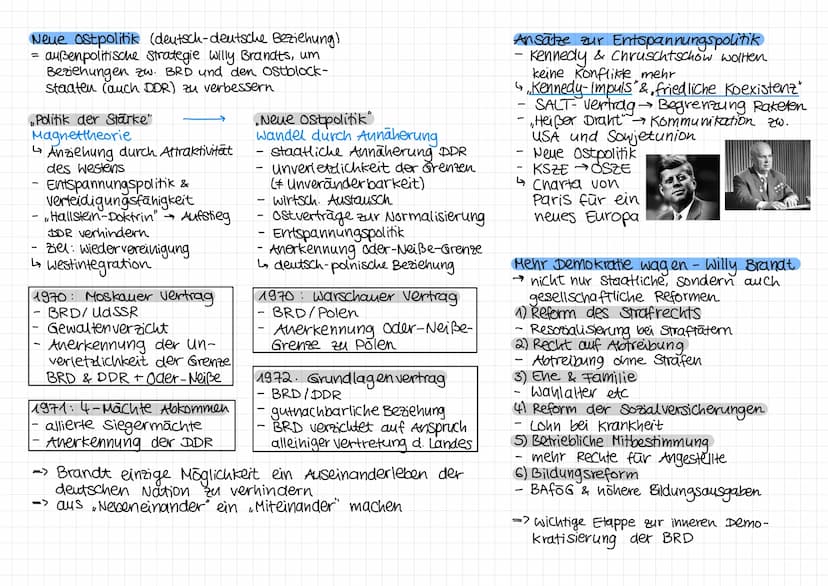 Neue Ostpolitik (deutsch-deutsche Beziehung)
= außenpolitische Strategie Willy Brandts, um
Beziehungen zw. BRD und den Ostblock-
staaten (auch DDR) zu verbessern
„Politik der Stärke" →
Magnettheorie
↳ Anziehung durch Attraktivität
des Westens
- Entspannungspolitik &
Verteidigungsfähigkeit
- „Hallstein-Doktrin" → Aufstieg
DDR verhindern
- Ziel: Wiedervereinigung
↳ Westintegration
„Neue Ostpolitik"
Wandel durch Annäherung
- staatliche Annäherung DDR
- unverletzlichkeit der Grenzen
(≠ unveränderbarkeit)
- wirtsch. Austausch
- Ostverträge zur Normalisierung
- Entspannungspolitik
- Anerkennung Oder-Neiße-Grenze
↳ deutsch-polnische Beziehung
1970: Moskauer Vertrag
- BRD/UdSSR
- Gewaltenverzicht
- Anerkennung der Un-
verletzlichkeit der Grenze
BRD & DDR + Oder-Neiße
1971: 4-Mächte Abkommen
- allierte Siegermächte
- Anerkennung der DDR
1970: Warschauer Vertrag
- BRD/Polen
- Anerkennung Oder-Neiße-
Grenze zu Polen
1972: Grundlagenvertrag
- BRD/DDR
- gutnachbarliche Beziehung
- BRD verzichtet auf Anspruch
alleiniger Vertretung d. Landes
-> Brandt einzige Möglichkeit ein Auseinanderleben der
deutschen Nation zu verhindern
-> aus „Nebeneinander" ein „Miteinander" machen
Ansätze zur Entspannungspolitik
- Kennedy & Chruschtschow wollten
keine Konflikte mehr
↳ „Kennedy-Impuls" & „friedliche Koexistenz"
- SALT-Vertrag → Begrenzung Raketen
- „Heißer Draht" → Kommunikation zw.
USA und Sowjetunion
- Neue Ostpolitik
- KSZE → OSZE
↳ Charta von
Paris für ein
neues Europa
Mehr Demokratie wagen - Willy Brandt
→ nicht nur staatliche, sondern auch
gesellschaftliche Reformen
1) Reform des Strafrechts
- Resozialisierung bei Straftätern
2) Recht auf Abtreibung
- Abtreibung ohne Strafen
3) Ehe & Familie
- Wahlalter etc
4) Reform der Sozialversicherungen
- Lohn bei Krankheit
5) Betriebliche Mitbestimmung
- mehr Rechte für Angestellte
6) Bildungsreform
- BAföG & höhere Bildungsausgaben
-> wichtige Etappe zur inneren Demo-
kratisierung der BRD